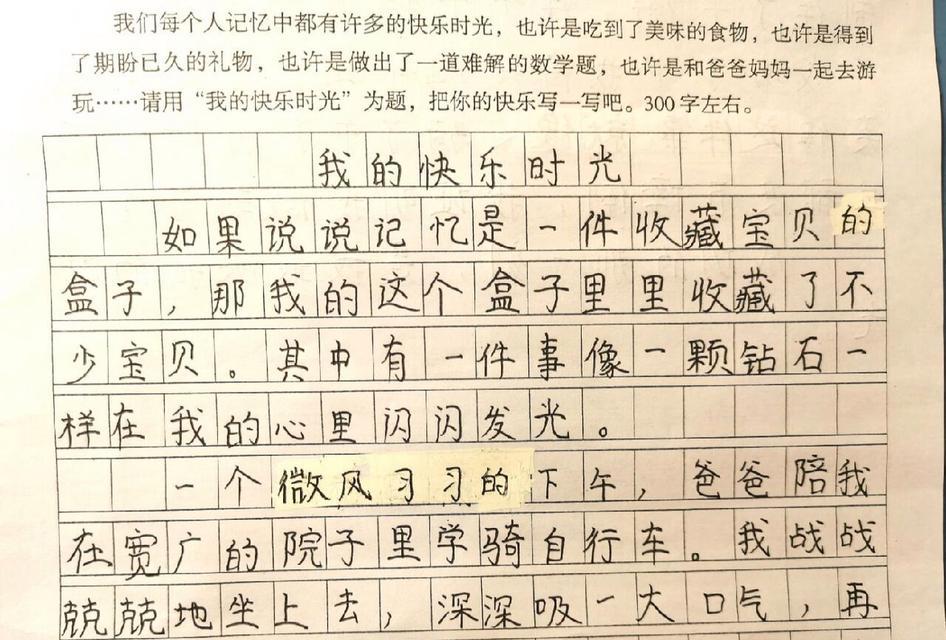 我们每个人记忆中都有许多的快乐时光，也许是吃到了美味的食物，也许是得到
了期盼已久的礼物，也许是做出了一道难解的数学题，也许是和爸爸妈妈一起去游
玩……请用“我的快乐时光”为题，把你的快乐写一写吧。300字左右。
我的快乐时光
如果说说记忆是一件收藏宝贝的
盒子，那我的这个盒子里里收藏了不
少宝贝。其中有一件事像一颗钻石一
样在我的心里闪闪发光。
一个微风习习的下午，爸爸陪我
在宽广的院子里学骑自行车。我战战
兢兢地坐上去，深深吸一大口气，再